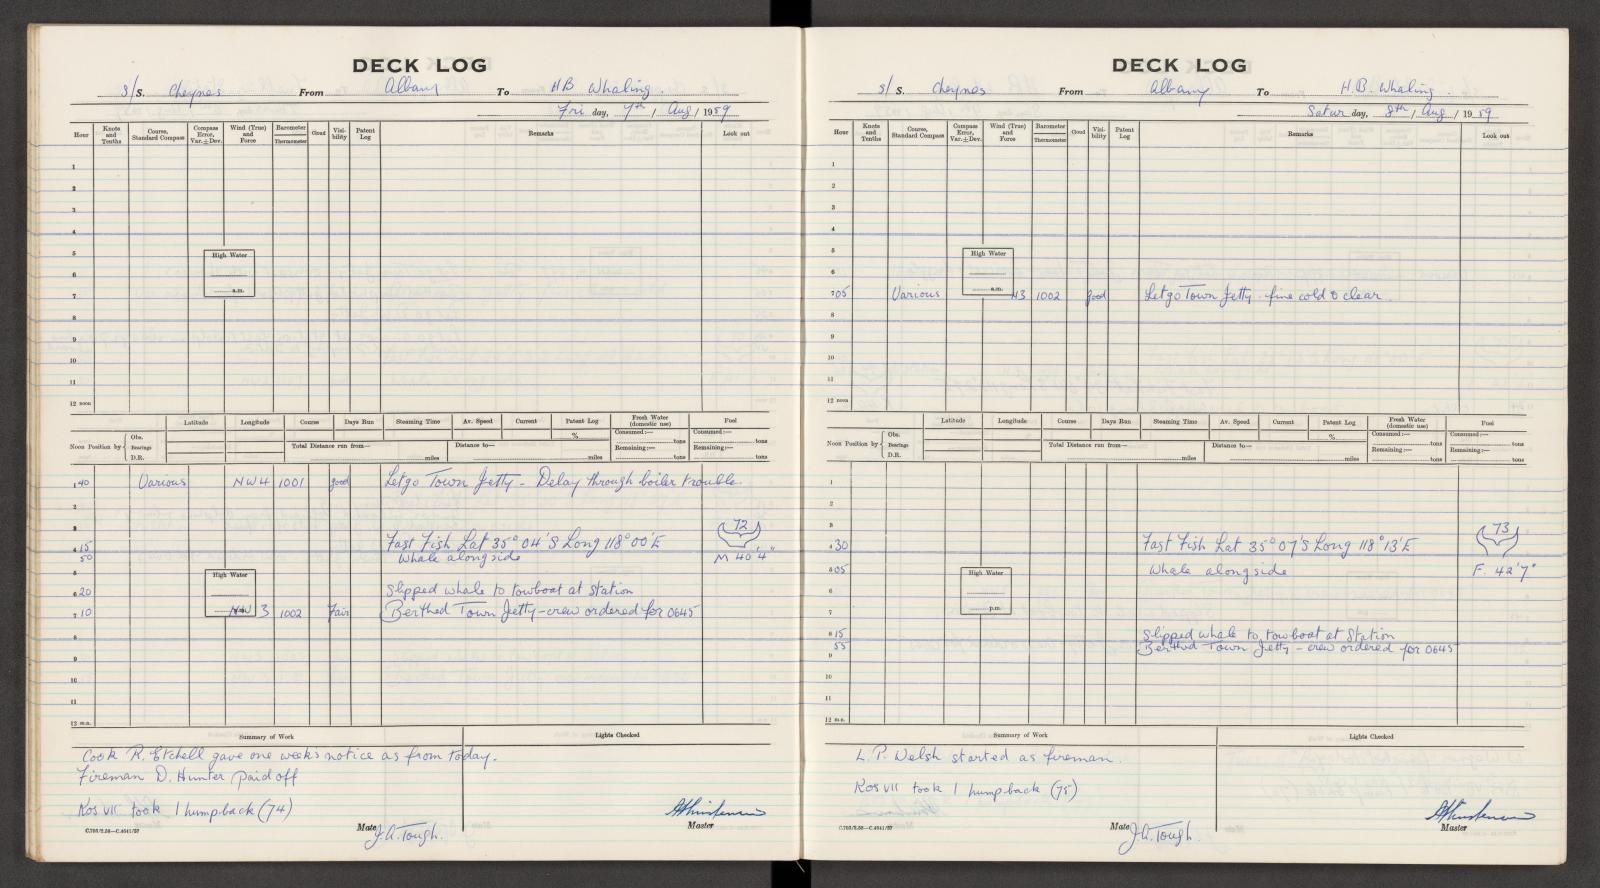 DECK LOG
S/S. Cheynes From Albany To H.B Whaling.
Fri day, 7th / Aug / 1959
Hour Knots and Tenths Course, Standard Compass Compass Error, Var. ± Dev. Wind (True) and Force Barometer Thermometer Cloud Visibility Patent Log Remarks Look out
1
2
3
4
5 High Water
6
a.m.
7
8
9
10
11
12 noon
Latitude Longitude Course Days Run Steaming Time Av. Speed Current Patent Log Fresh Water (domestic use) Fuel
% Consumed:— tons Consumed:— tons
Noon Position by { Obs. Bearings D.R. Total Distance run from— miles Distance to— miles Remaining:— tons Remaining:— tons
1 40 Various NW4 1001 good Letgo Town Jetty - Delay through boiler trouble.
2
3 72
4 15 Fast Fish Lat 35° 04' S Long 118° 00' E
50 Whale alongside M 40'4"
5 High Water
6 20 Slipped whale to towboat at Station
7 10 NW 3 1002 Fair Berthed Town Jetty - crew ordered for 0645
9
10
11
12 m.n.
Summary of Work Lights Checked
Cook R. Etchell gave one week's notice as from today.
Fireman D. Hunter paid off
Kos VII took 1 humpback (74)
Master
C.700/2.58—C.4641/57 Mate J.A. Tough.
DECK LOG
S/S. Cheynes From Albany To H.B. Whaling.
Satur day, 8th / Aug / 1959
Hour Knots and Tenths Course, Standard Compass Compass Error, Var. ± Dev. Wind (True) and Force Barometer Thermometer Cloud Visibility Patent Log Remarks Look out
1
2
3
4
5 High Water
6
a.m.
7 05 Various N3 1002 good Letgo Town Jetty - fine cold & clear
8
9
10
11
12 noon
Latitude Longitude Course Days Run Steaming Time Av. Speed Current Patent Log Fresh Water (domestic use) Fuel
% Consumed:— tons Consumed:— tons
Noon Position by { Obs. Bearings D.R. Total Distance run from— miles Distance to— miles Remaining:— tons Remaining:— tons
1
2
3 73
4 30 Fast Fish Lat 35° 07' S Long 118° 13' E
5 05 Whale alongside F. 42'7"
High Water
6
p.m.
7
8 15 Slipped whale to towboat at Station
55 Berthed Town Jetty - crew ordered for 0645
10
11
12 m.n.
Summary of Work Lights Checked
L. P. Welsh started as fireman.
Kos VII took 1 humpback (75)
Master
C.700/2.58—C.4641/57 Mate J.A. Tough.